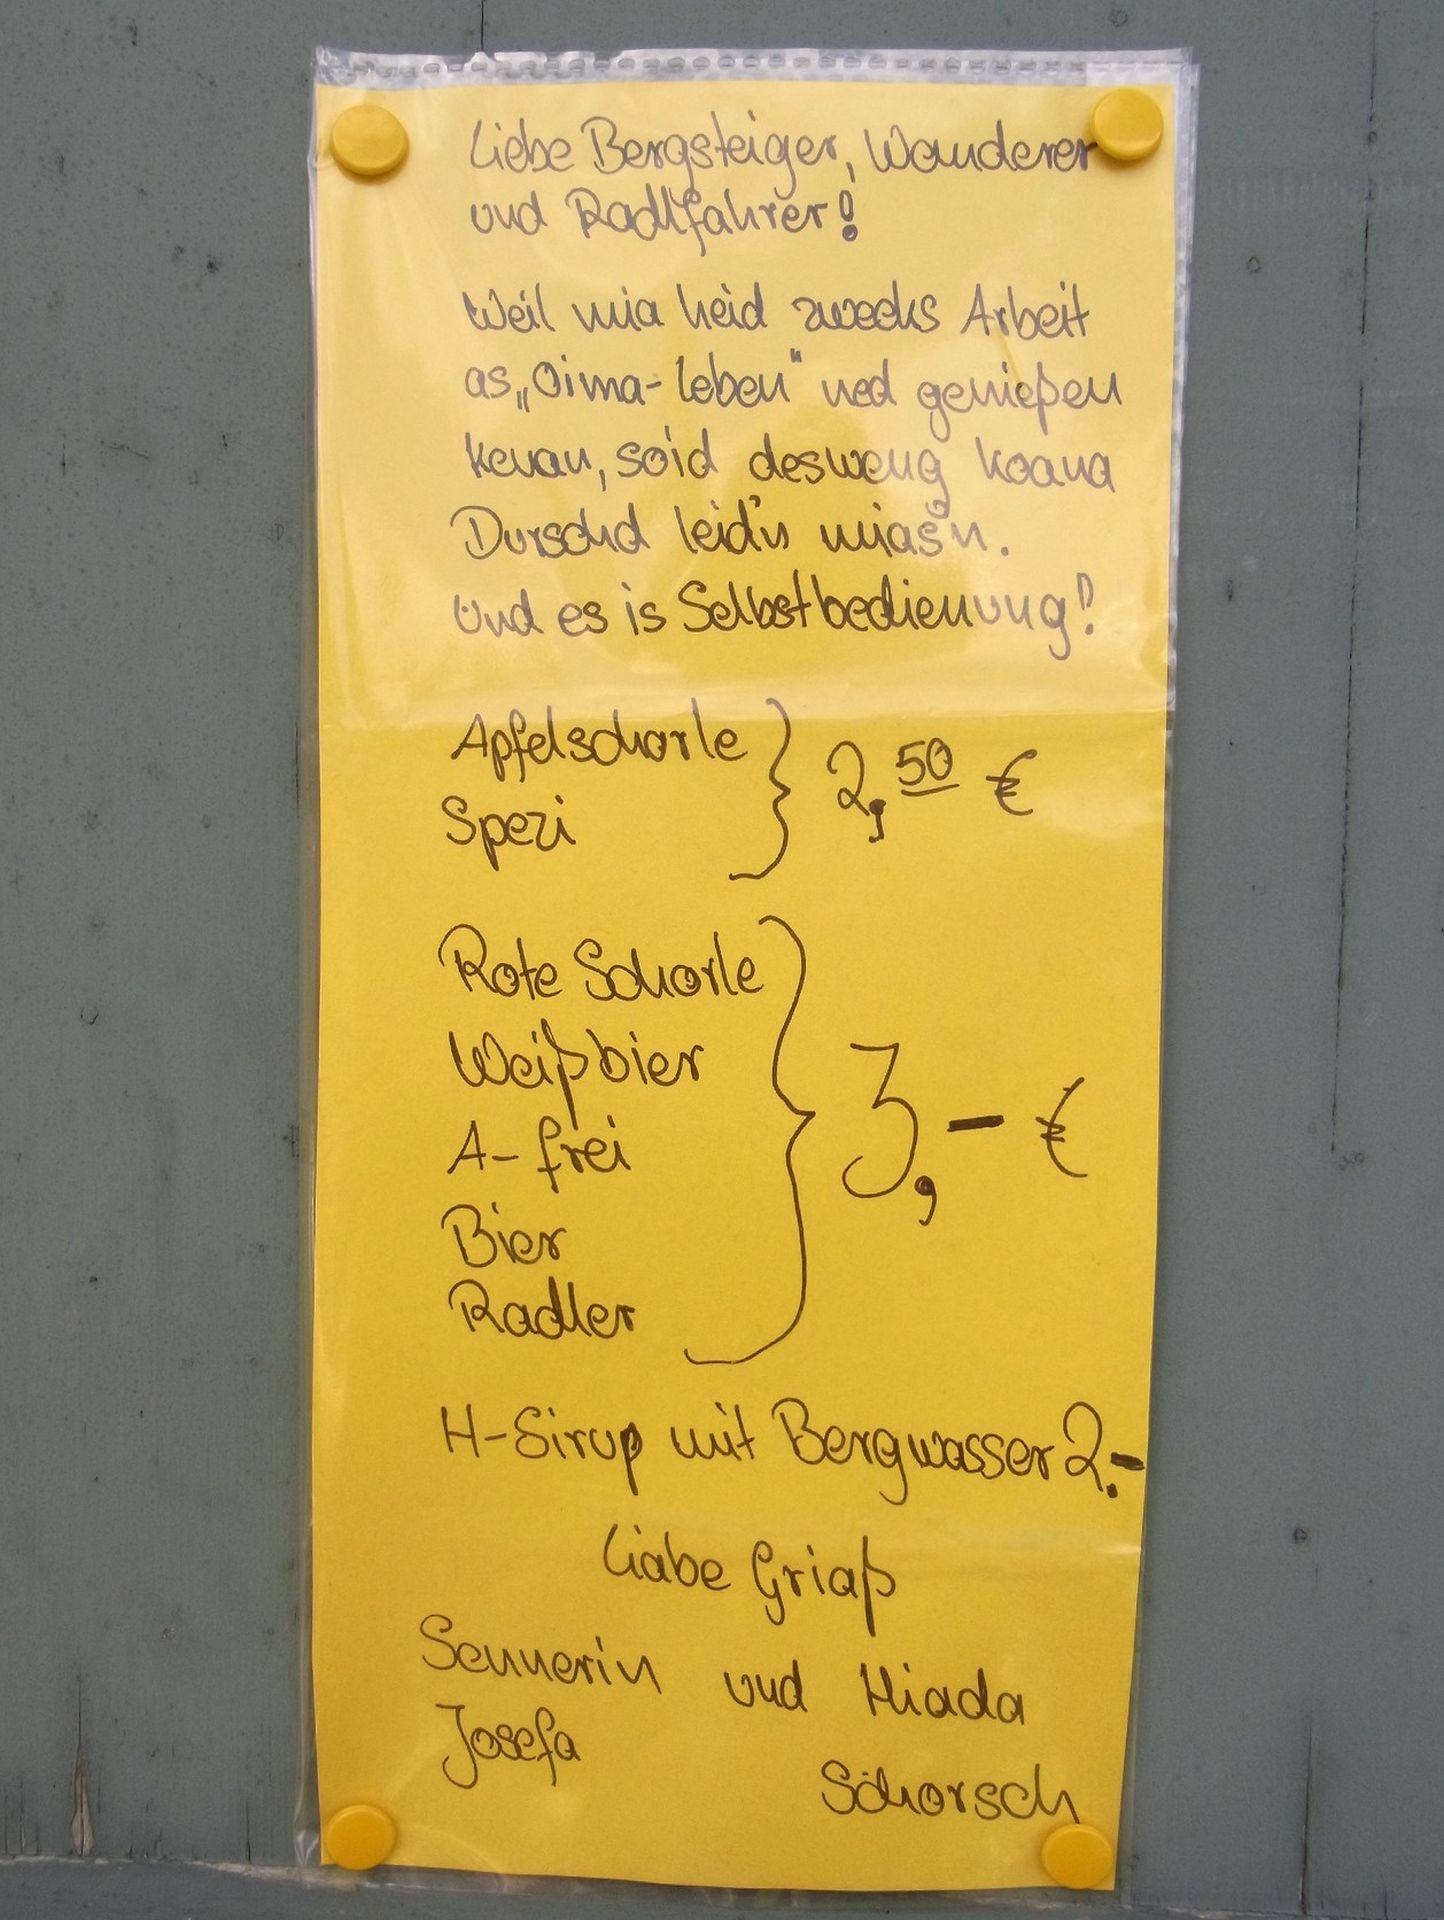 Liebe Bergsteiger, Wanderer
und Radlfahrer!
Weil mia heid zwecks Arbeit
as „Oima-Leben" ned genießen
kenan, soid desweng koana
Durschd leid'n mias'n.
Und es is Selbstbedienung!
Apfelschorle
Spezi
2,50 €
Rote Schorle
Weißbier
A-frei
Bier
Radler
3,- €
H-Sirup mit Bergwasser 2.-
Liabe Griaß
Sennerin und Hiada
Josefa
Schorsch